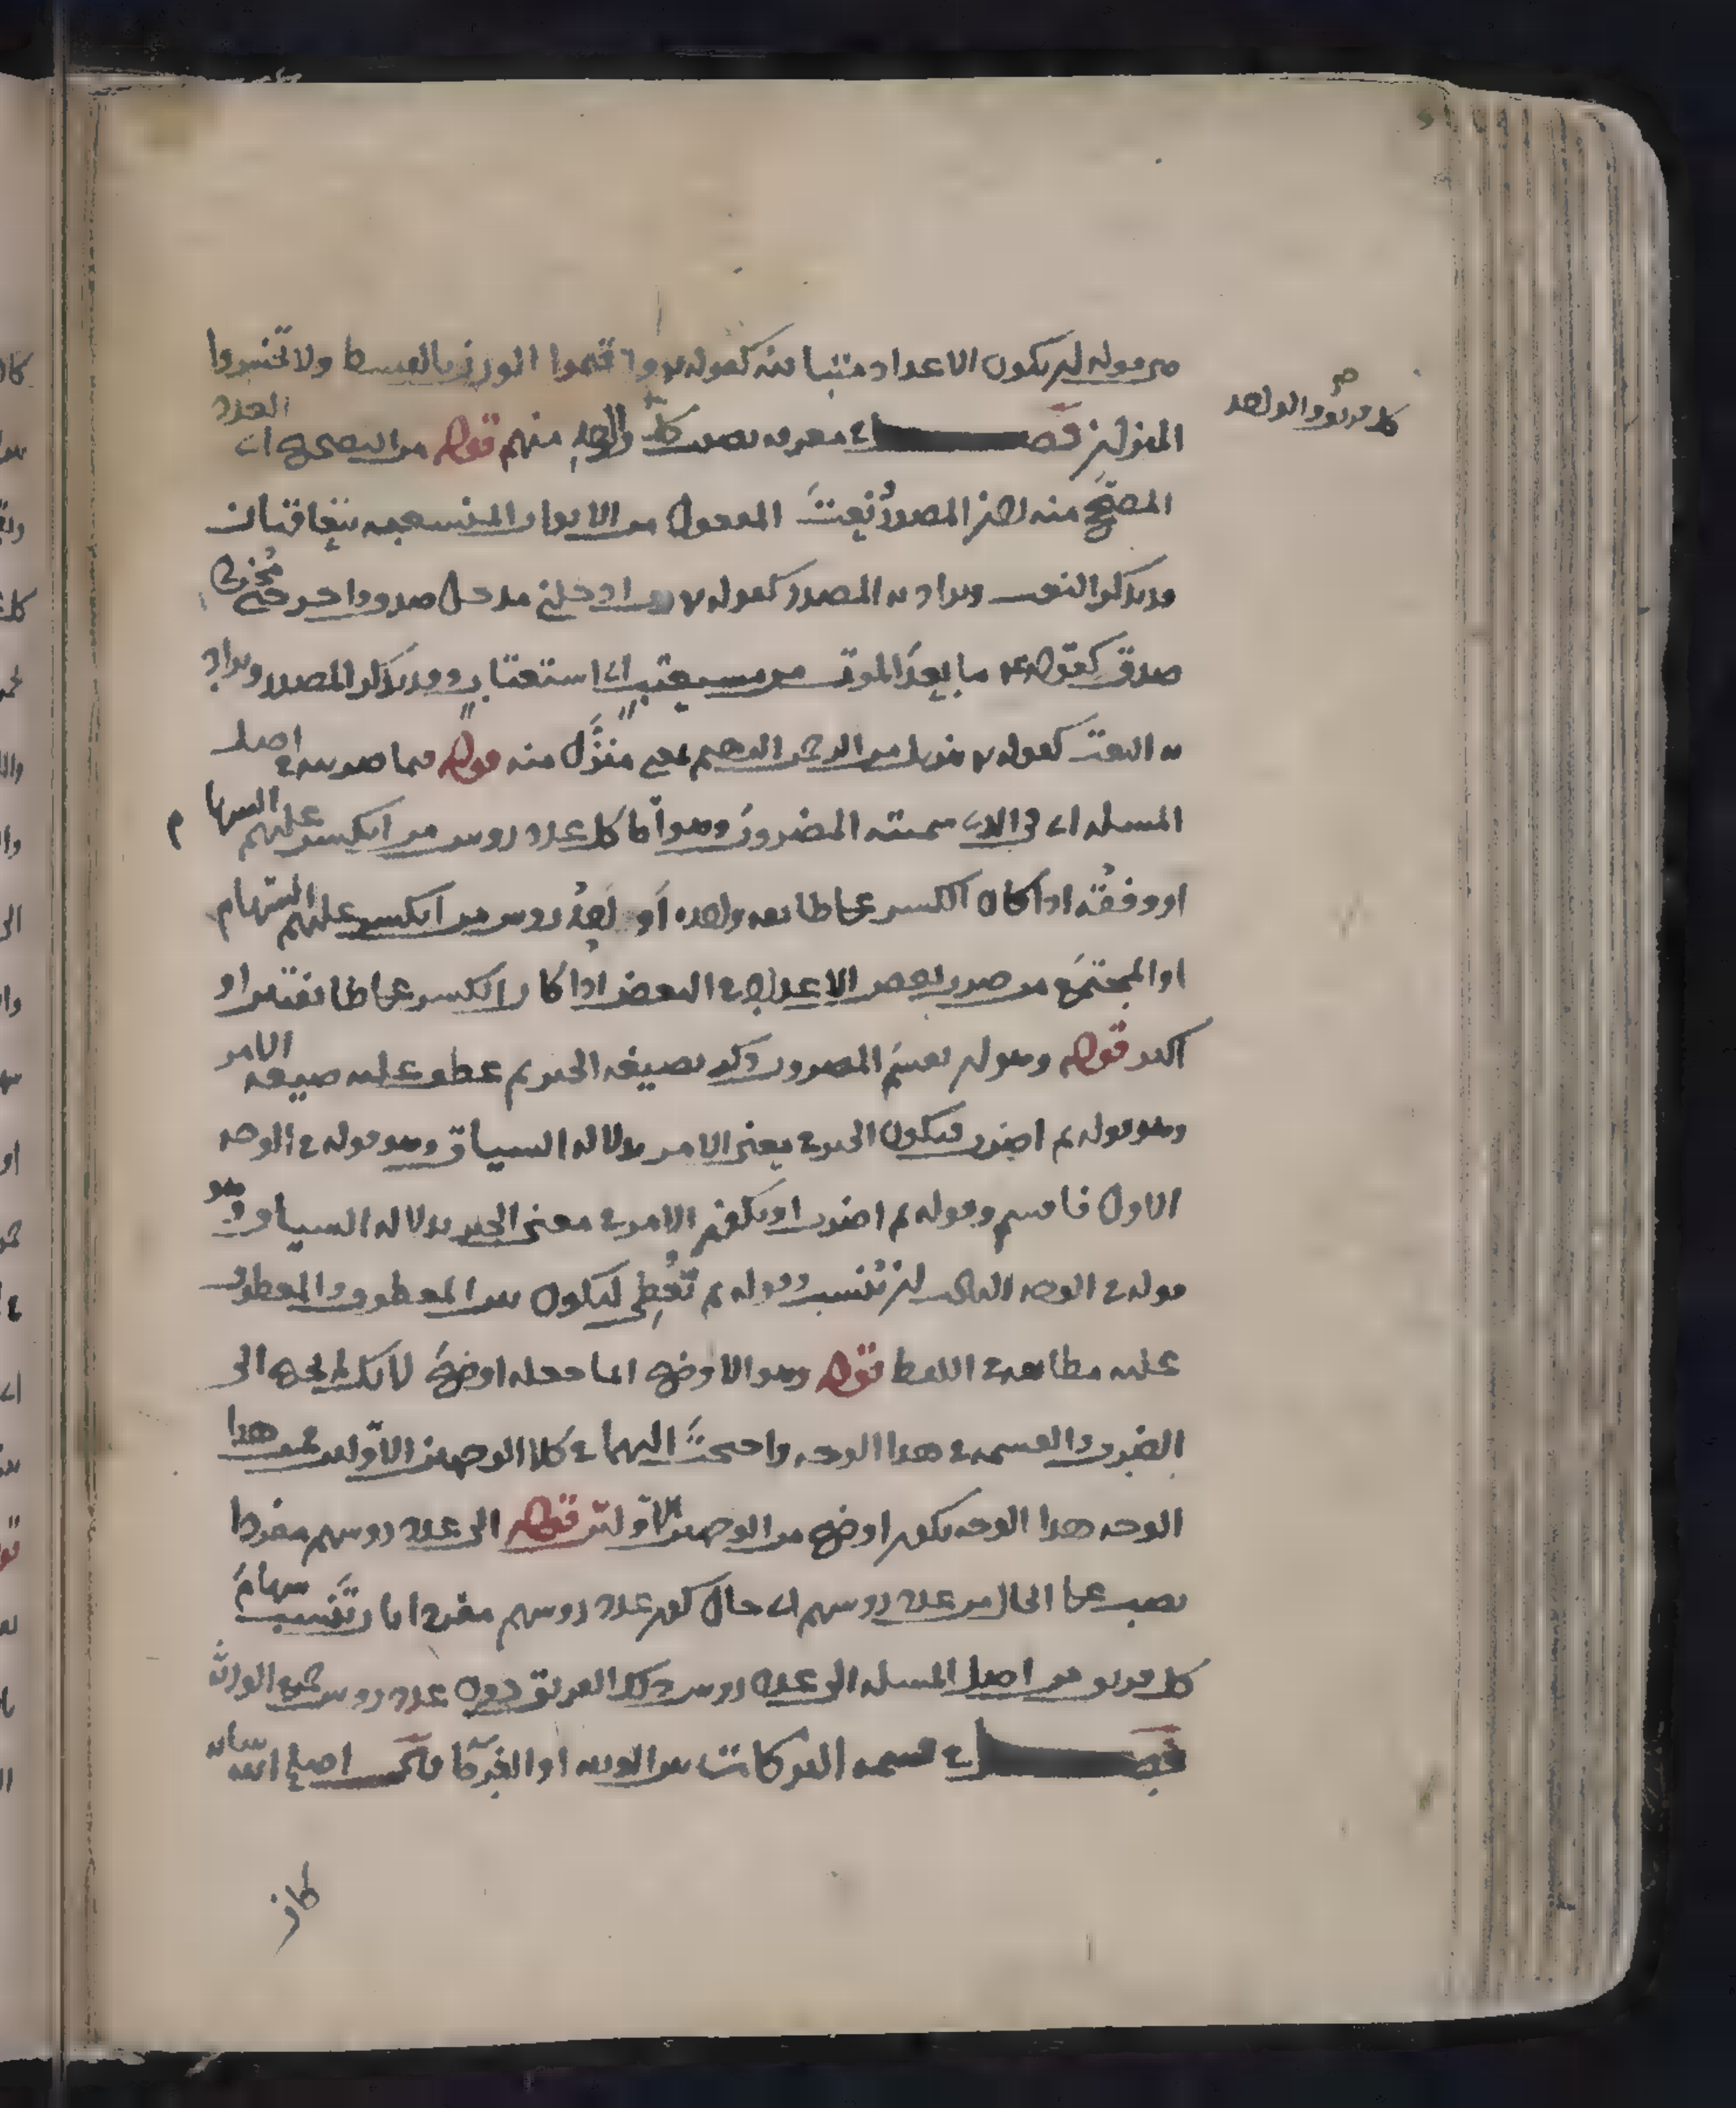 من قوله ان يكون الاعداد متباينه كقوله تع واقيموا الوزن بالقسط ولا تخسروا
الميزان فصل في معرفه نصيب كل واحد منهم قوله من التصحيح اى العدد
كل فريق والواحد صح
المصحح منه لان المصدر ونعت المفعول من الابواب المنشعبه يتفاقتان
وقد يذكر النعت ويراد به المصدر كقوله تع رب ادخلني مدخل صدق واخرجني مخرج
صدق كقوله ع م ما بعد الموت من مستعتب اى استعتاب وقد يذكر المصدر ويراد
به النعت كقوله تع تنزيل من الرحمن الرحيم بمعنى منزل منه قوله فيما ضربته في اصل
المسله اى في الذى سميته المضروب وهو اما كل عدد روس من انكسر عليهم السهام
او وفقه اذا كان الكسر على طائفه واحده او احد روس من انكسر عليهم السهام
او المجتمع من ضرب بعض الاعداد في البعض اذا كان الكسر على طائفتين او
اكثر قوله وهو ان تقسم المضروب ذكر بصيغه الخبر ثم عطف عليه صيغه الامر
وهو قوله ثم اضرب فيكون الخبر في معنى الامر بدلاله السياق وهو قوله في الوجه
الاول فاقسم وقوله ثم اضرب او يكون الامر في معنى الخبر بدلاله السياق وهو
قوله في الوجه الثالث ان تنسب وقوله ثم تعطى ليكون بين المعطوف والمعطوف
عليه مطابقه في اللفظ قوله وهو الاوضح انما جعله اوضح لانك لم تحتج الى
الضرب والقسمه في هذا الوجه واحتجت اليهما في كلا الوجهين الاولين هذا
الوجه هذا الوجه يكون اوضح من الوجهين الاولين قوله الى عدد روسهم مفردا
نصب على الحال من عدد روسهم اى حال كون عدد روسهم مفردا اى ان تنسب سهام
كل فريق من اصل المسله الى عدد روس ذلك الفريق دون عدد روس جميع الورثه
فصل في قسمه التركات بين الورثه او الغرما قال اصلح الله شانه
كان